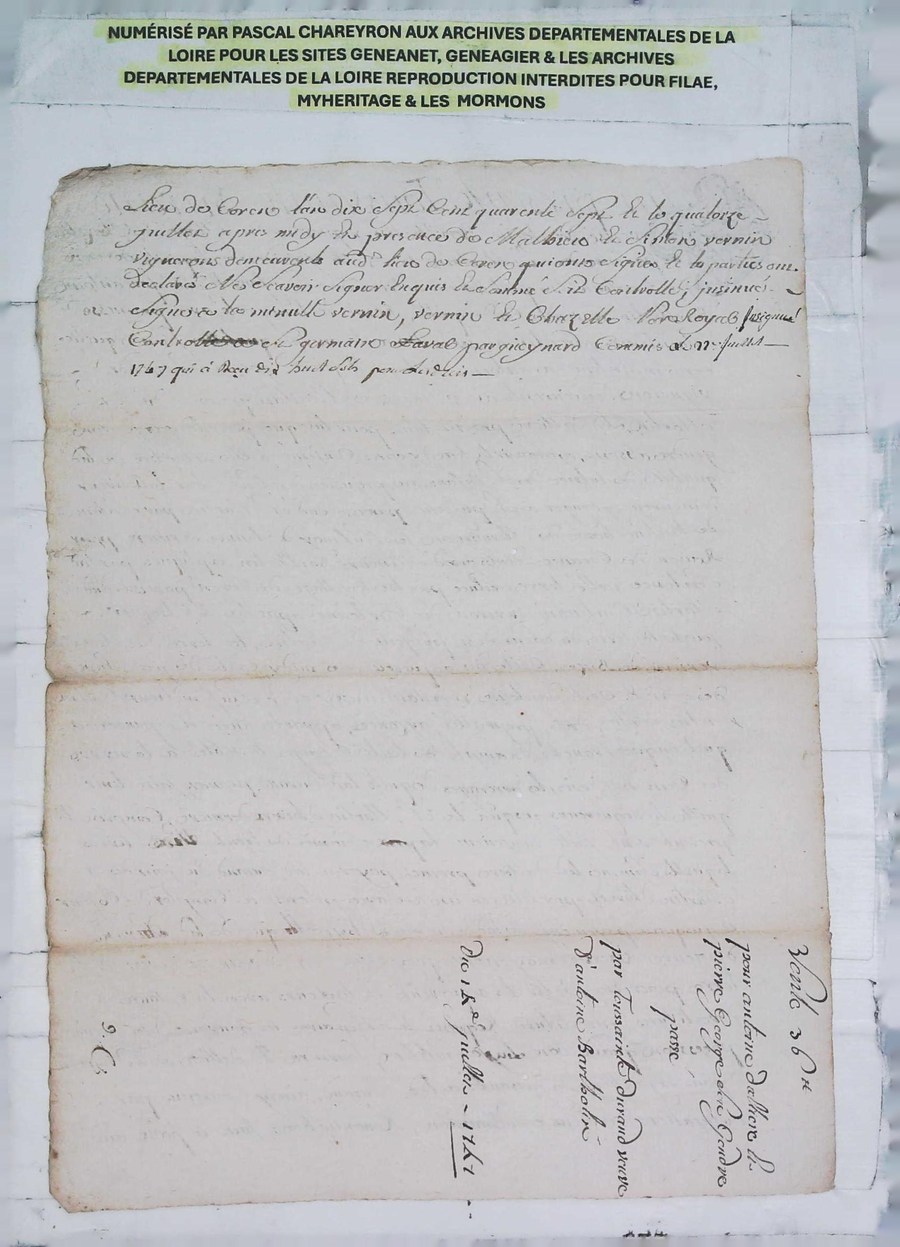 NUMÉRISÉ PAR PASCAL CHAREYRON AUX ARCHIVES DEPARTEMENTALES DE LA
LOIRE POUR LES SITES GENEANET, GENEAGIER & LES ARCHIVES
DEPARTEMENTALES DE LA LOIRE REPRODUCTION INTERDITES POUR FILAE,
MYHERITAGE & LES MORMONS
Lieu de Coren l'an dix Sept Cent quarente Sept Et le quatorze
juillet apres midy En presence de Mathieu Et Simon vernin
vignerons demeurents aud. lieu de Coren qui ont Signes Et les parties ont
declaré Ne Scavoir Signer Enquis Et Sommé Soit Controllé
Signe a la minutte vernin, vernin Et Chazelle Nore Royal
St germain Laval par gueynard Commis le juillet
1747 qui a Receu dix huit sols
Vente 36
pour antoine
pierre George son Gendre
payé
par toussainte durand veuve
d'antoine Barthelin
du 14e Juillet 1747